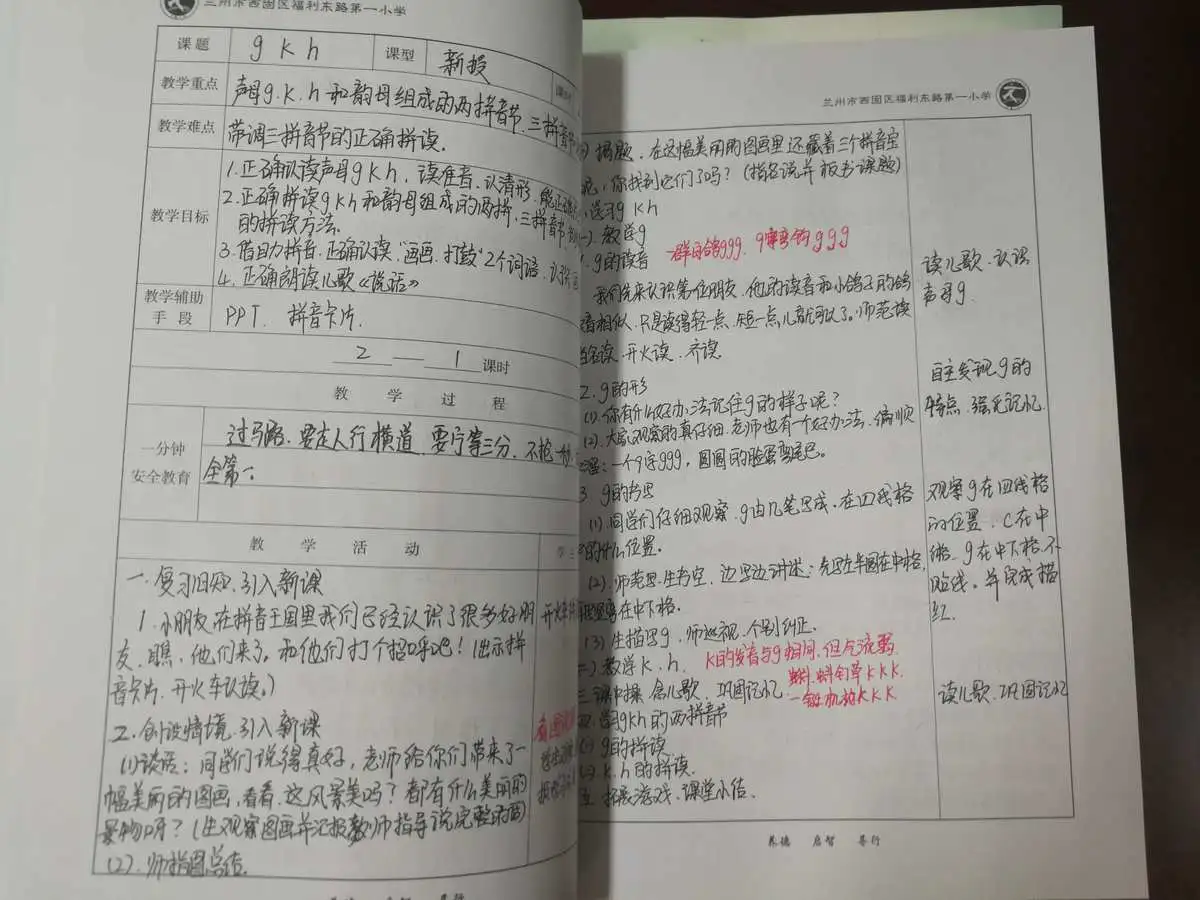 兰州市西固区福利东路第一小学
课题 g k h 课型 新授
教学重点 声母g.k.h和韵母组成的两拼音节.三拼音节
教学难点 带调三拼音节的正确拼读.
教学目标
1.正确认读声母gkh,读准音,认清形,能正确
2.正确拼读gkh和韵母组成的两拼,三拼音节
的拼读方法.
3.借助拼音.正确认读."画画.打鼓"2个词语.认识
4.正确朗读儿歌《说话》
教学辅助手段 PPT. 拼音卡片.
2 — 1 课时
教 学 过 程
一分钟安全教育 过马路.要走人行横道.要宁等三分.不抢一秒
全第一.
教 学 活 动
一.复习旧知.引入新课
1.小朋友,在拼音王国里我们已经认识了很多好朋
友,瞧,他们来了,和他们打个招呼吧!(出示拼
音卡片.开火车认读.)
二.创设情境.引入新课
(1)谈话:同学们说得真好,老师给你们带来了一
幅美丽的图画,看看.这风景美吗?都有什么美丽的
景物呀?(生观察图画并汇报教师指导说完整的话)
(2).师指图总结.
兰州市西固区福利东路第一小学
揭题.在这幅美丽的图画里还藏着三个拼音宝
呢,你找到它们了吗?(指名说并板书课题)
学习g k h
教学g
g的读音 一群白鸽ggg.9字弯钩ggg
我们先来认识第一位朋友.他的读音和小鸽子的鸽
音相似.只是读得轻一点.短一点儿就可以了.师范读
指名读.开火读.齐读.
读儿歌.认识
声母g.
2.g的形
(1).你有什么好办法记住g的样子呢?
(2).大家观察的真仔细.老师也有一个好办法.编顺
口溜:一个9字ggg,圆圆的脸蛋弯尾巴.
自主发现g的
特点.强化记忆.
3.g的书写
(1).同学们仔细观察.g由几笔写成.在四线格
的什么位置.
(2).师范写.生书空.边写边讲述:先写左半圆在中格,
在中下格.
(3).生描写g.师巡视.个别纠正.
观察g在四线格
的位置.c在中
格.g在中下格.不
贴线.并完成描
红.
教学k.h. k的发音与g相同.但气流强
三.课中操.念儿歌.巩固记忆 蝌蚪.蝌蚪kkk.
kkk.
读儿歌.巩固记忆
四.学习gkh的两拼音节
g的拼读.
k.h的拼读.
五.拓展游戏.课堂小结.
养德 启智 善行